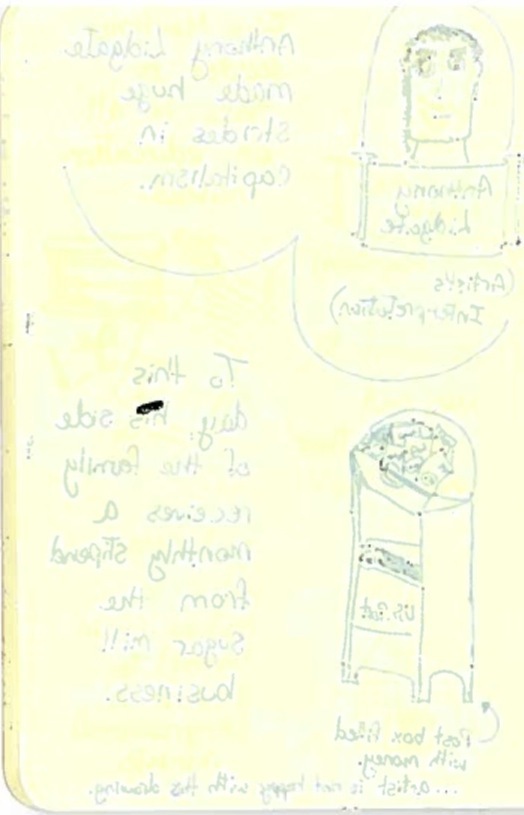 Anthony Lidgate
made huge
strides in
Capitalism.
Anthony
Lidgate
(Artist's
Interpretation)
To this
day, his side
of the family
receives a
monthly stipend
from the
sugar mill
business.
U.S. Post
Post box filled
with money.
...artist is not happy with this drawing.